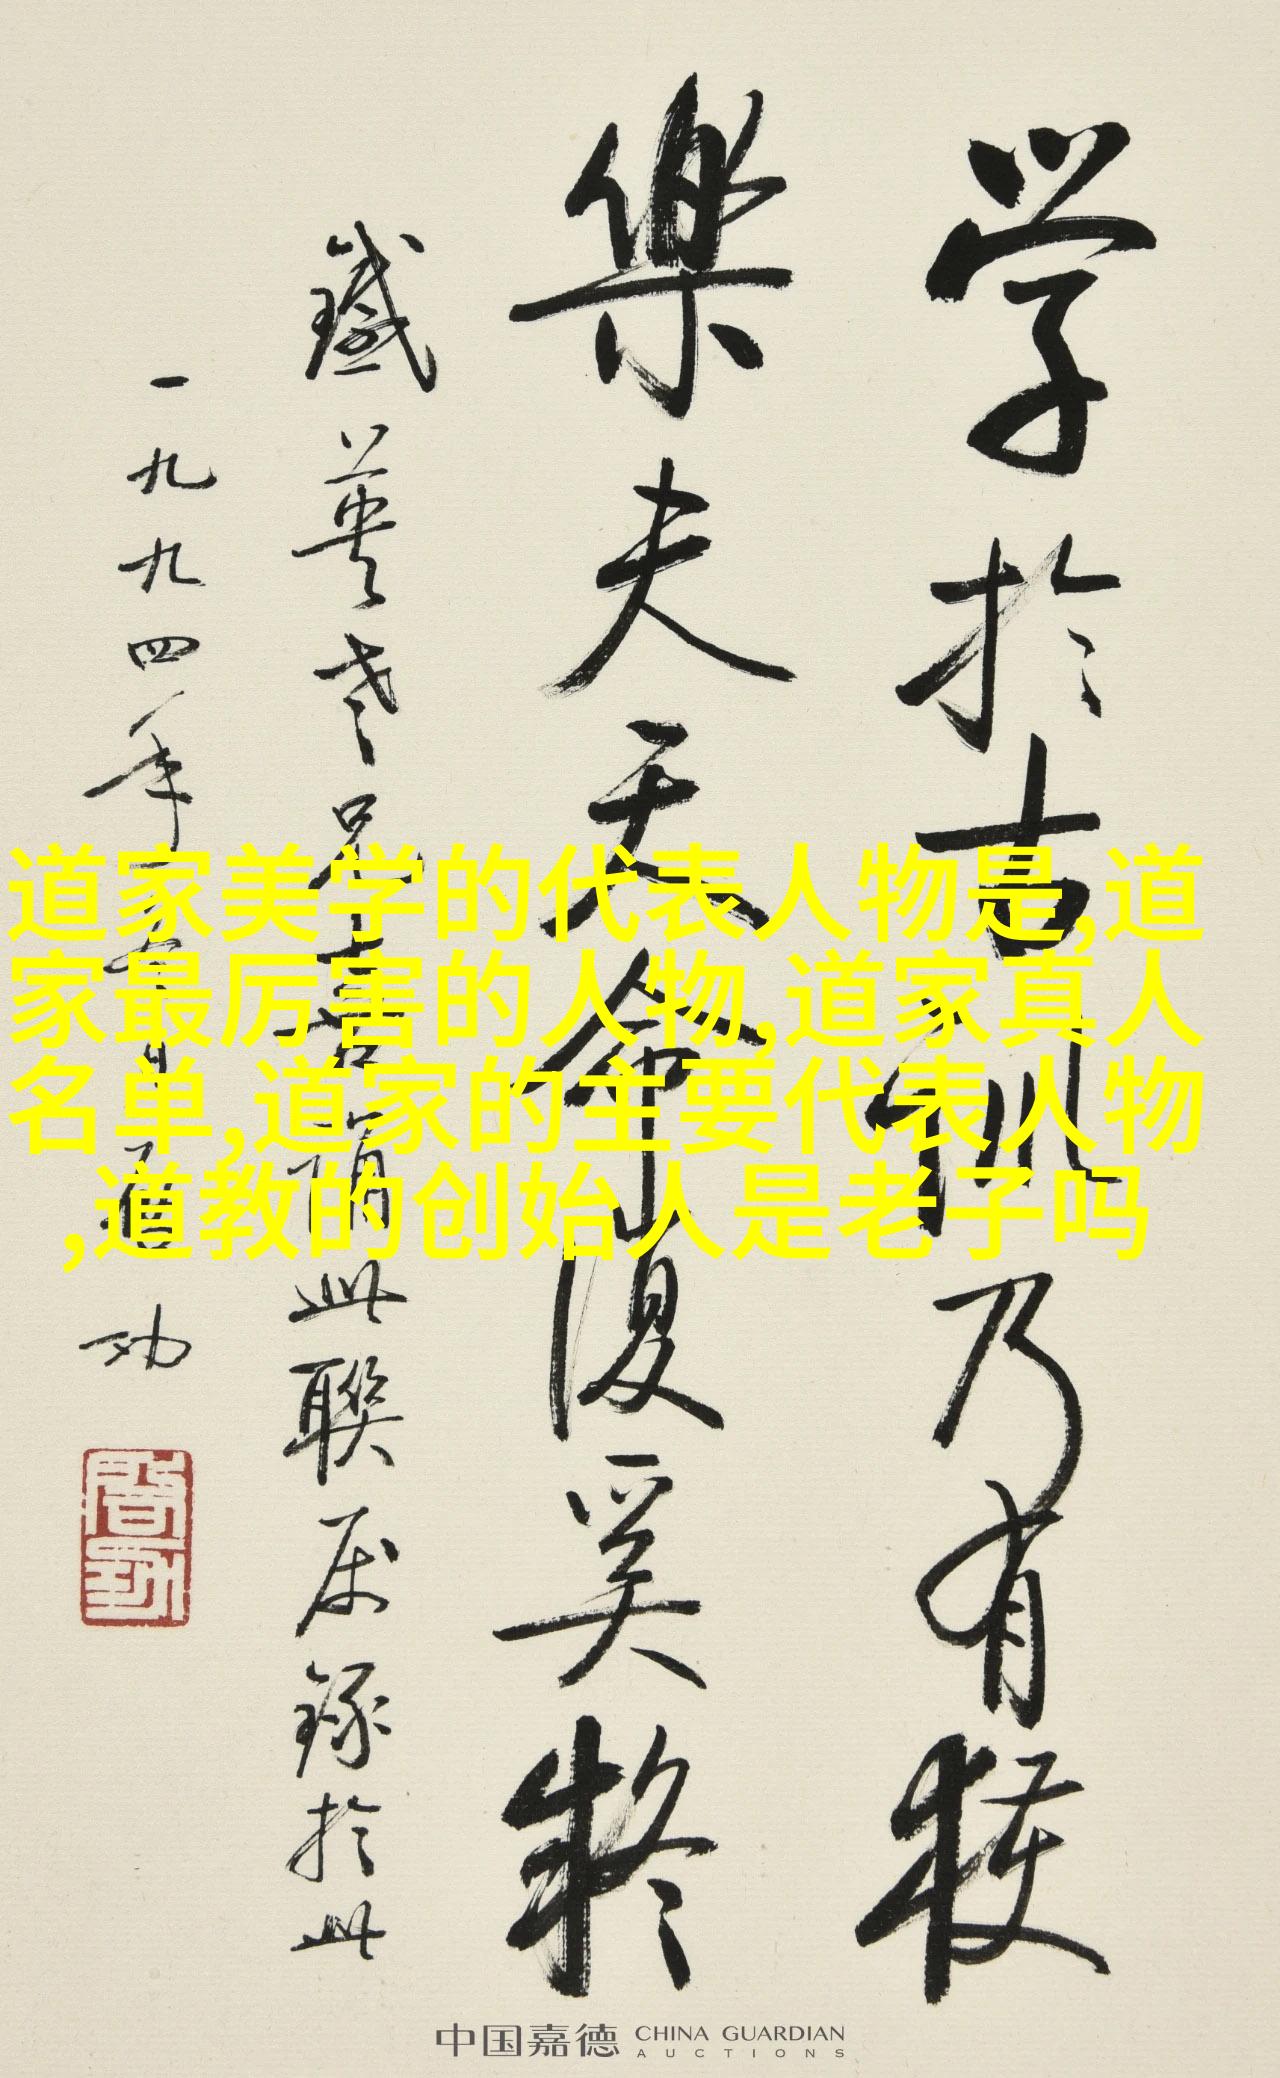 学於古訓乃有獲
樂夫天命復奚疑
鐵英老兄喜誦此聯属錄於此
一九九四年夏日啟功
道家美学的代表人物是,道
家最厉害的人物,道家真人
名单,道家的主要代表人物
,道教的创始人是老子吗
中国嘉德 CHINA GUARDIAN
AUCTIONS